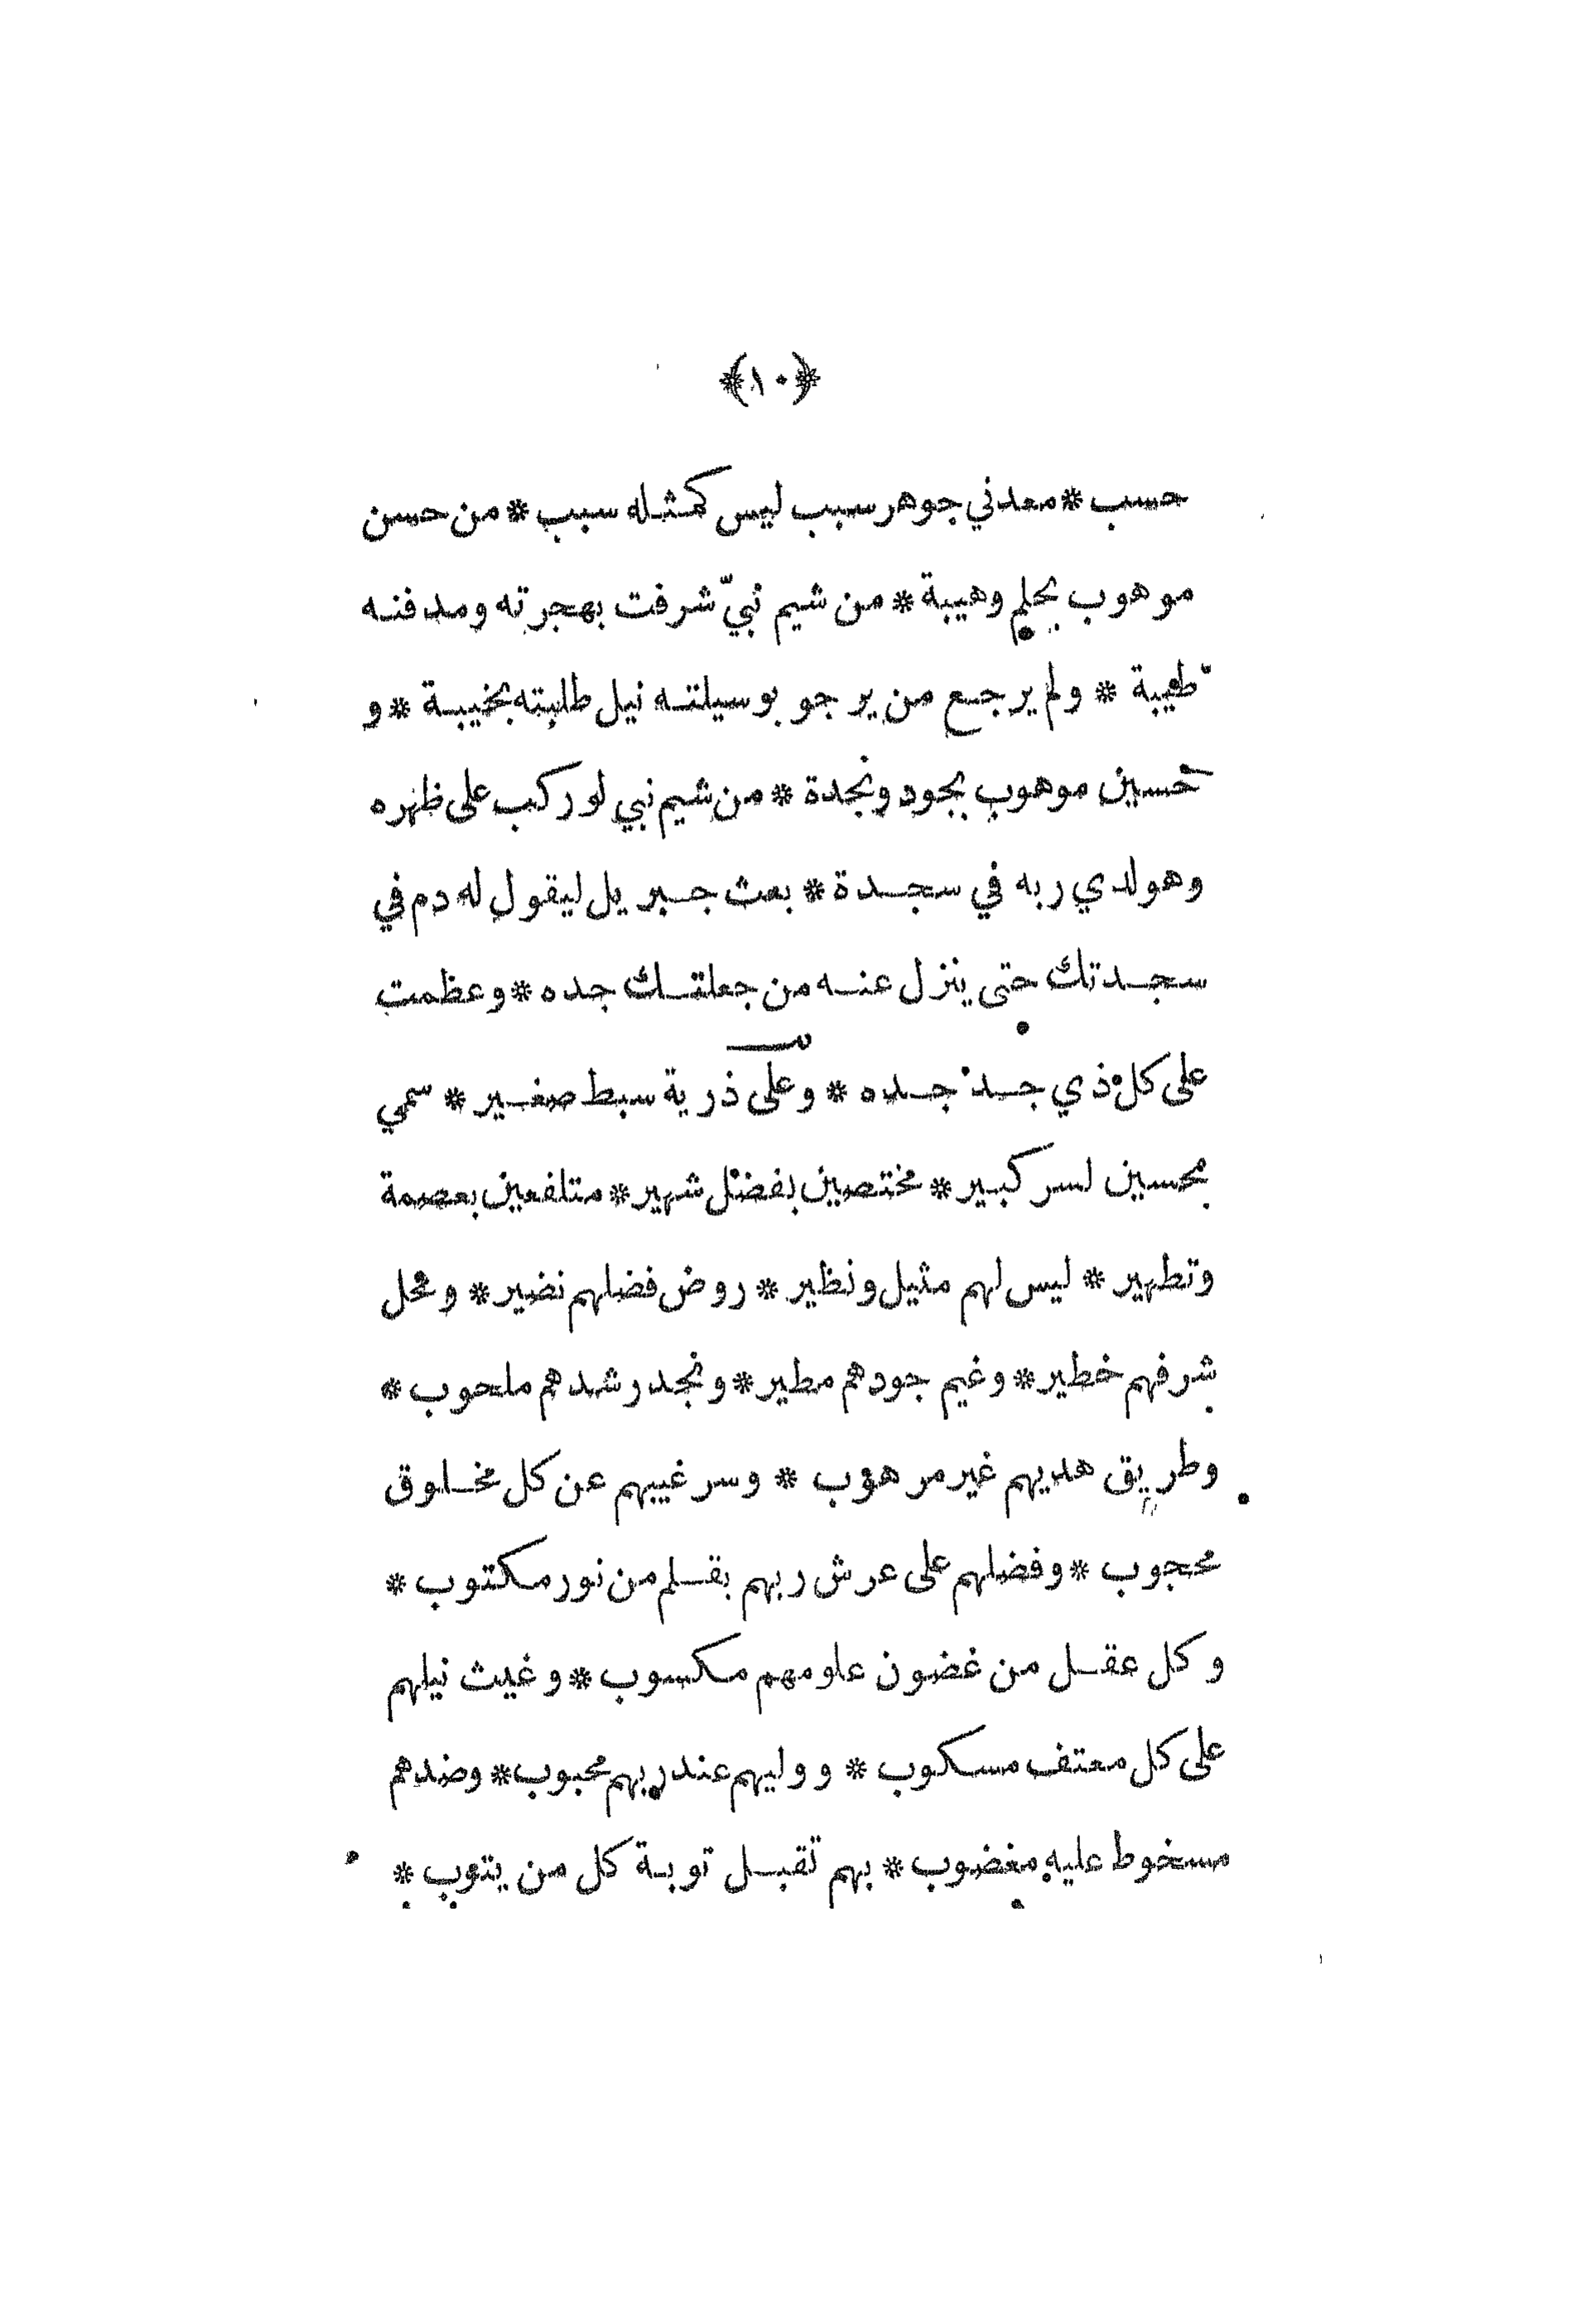 ﴿١٠﴾
حسب * معدني جوهر سبب ليس كمثله سبب * من حسن
موهوب بحلم وهيبة * من شيم نبيّ شرفت بهجرته ومدفنه
طيبة * ولم يرجع من يرجو بوسيلته نيل طلبته بخيبة * و
حسين موهوب بجود ونجدة * من شيم نبي لو ركب على ظهره
وهو لدي ربه في سجدة * بعث جبريل ليقول له دم في
سجدتك حتى ينزل عنه من جعلتك جده * وعظمت
على كل ذي جد جده * وعلى ذرية سبط صغير * سمي
بمحسين لسر كبير * مختصين بفضل شهير * متلفعين بعصمة
وتطهير * ليس لهم مثيل ونظير * روض فضلهم نضير * ومحل
شرفهم خطير * وغيم جودهم مطير * ونجد رشدهم ملحوب *
وطريق هديهم غير مرهوب * وسر غيبهم عن كل مخلوق
محجوب * وفضلهم على عرش ربهم بقلم من نور مكتوب *
وكل عقل من غضون علومهم مكسوب * وغيث نيلهم
على كل معتف مسكوب * ووليهم عند ربهم محبوب * وضدهم
مسخوط عليه مغضوب * بهم تقبل توبة كل من يتوب *